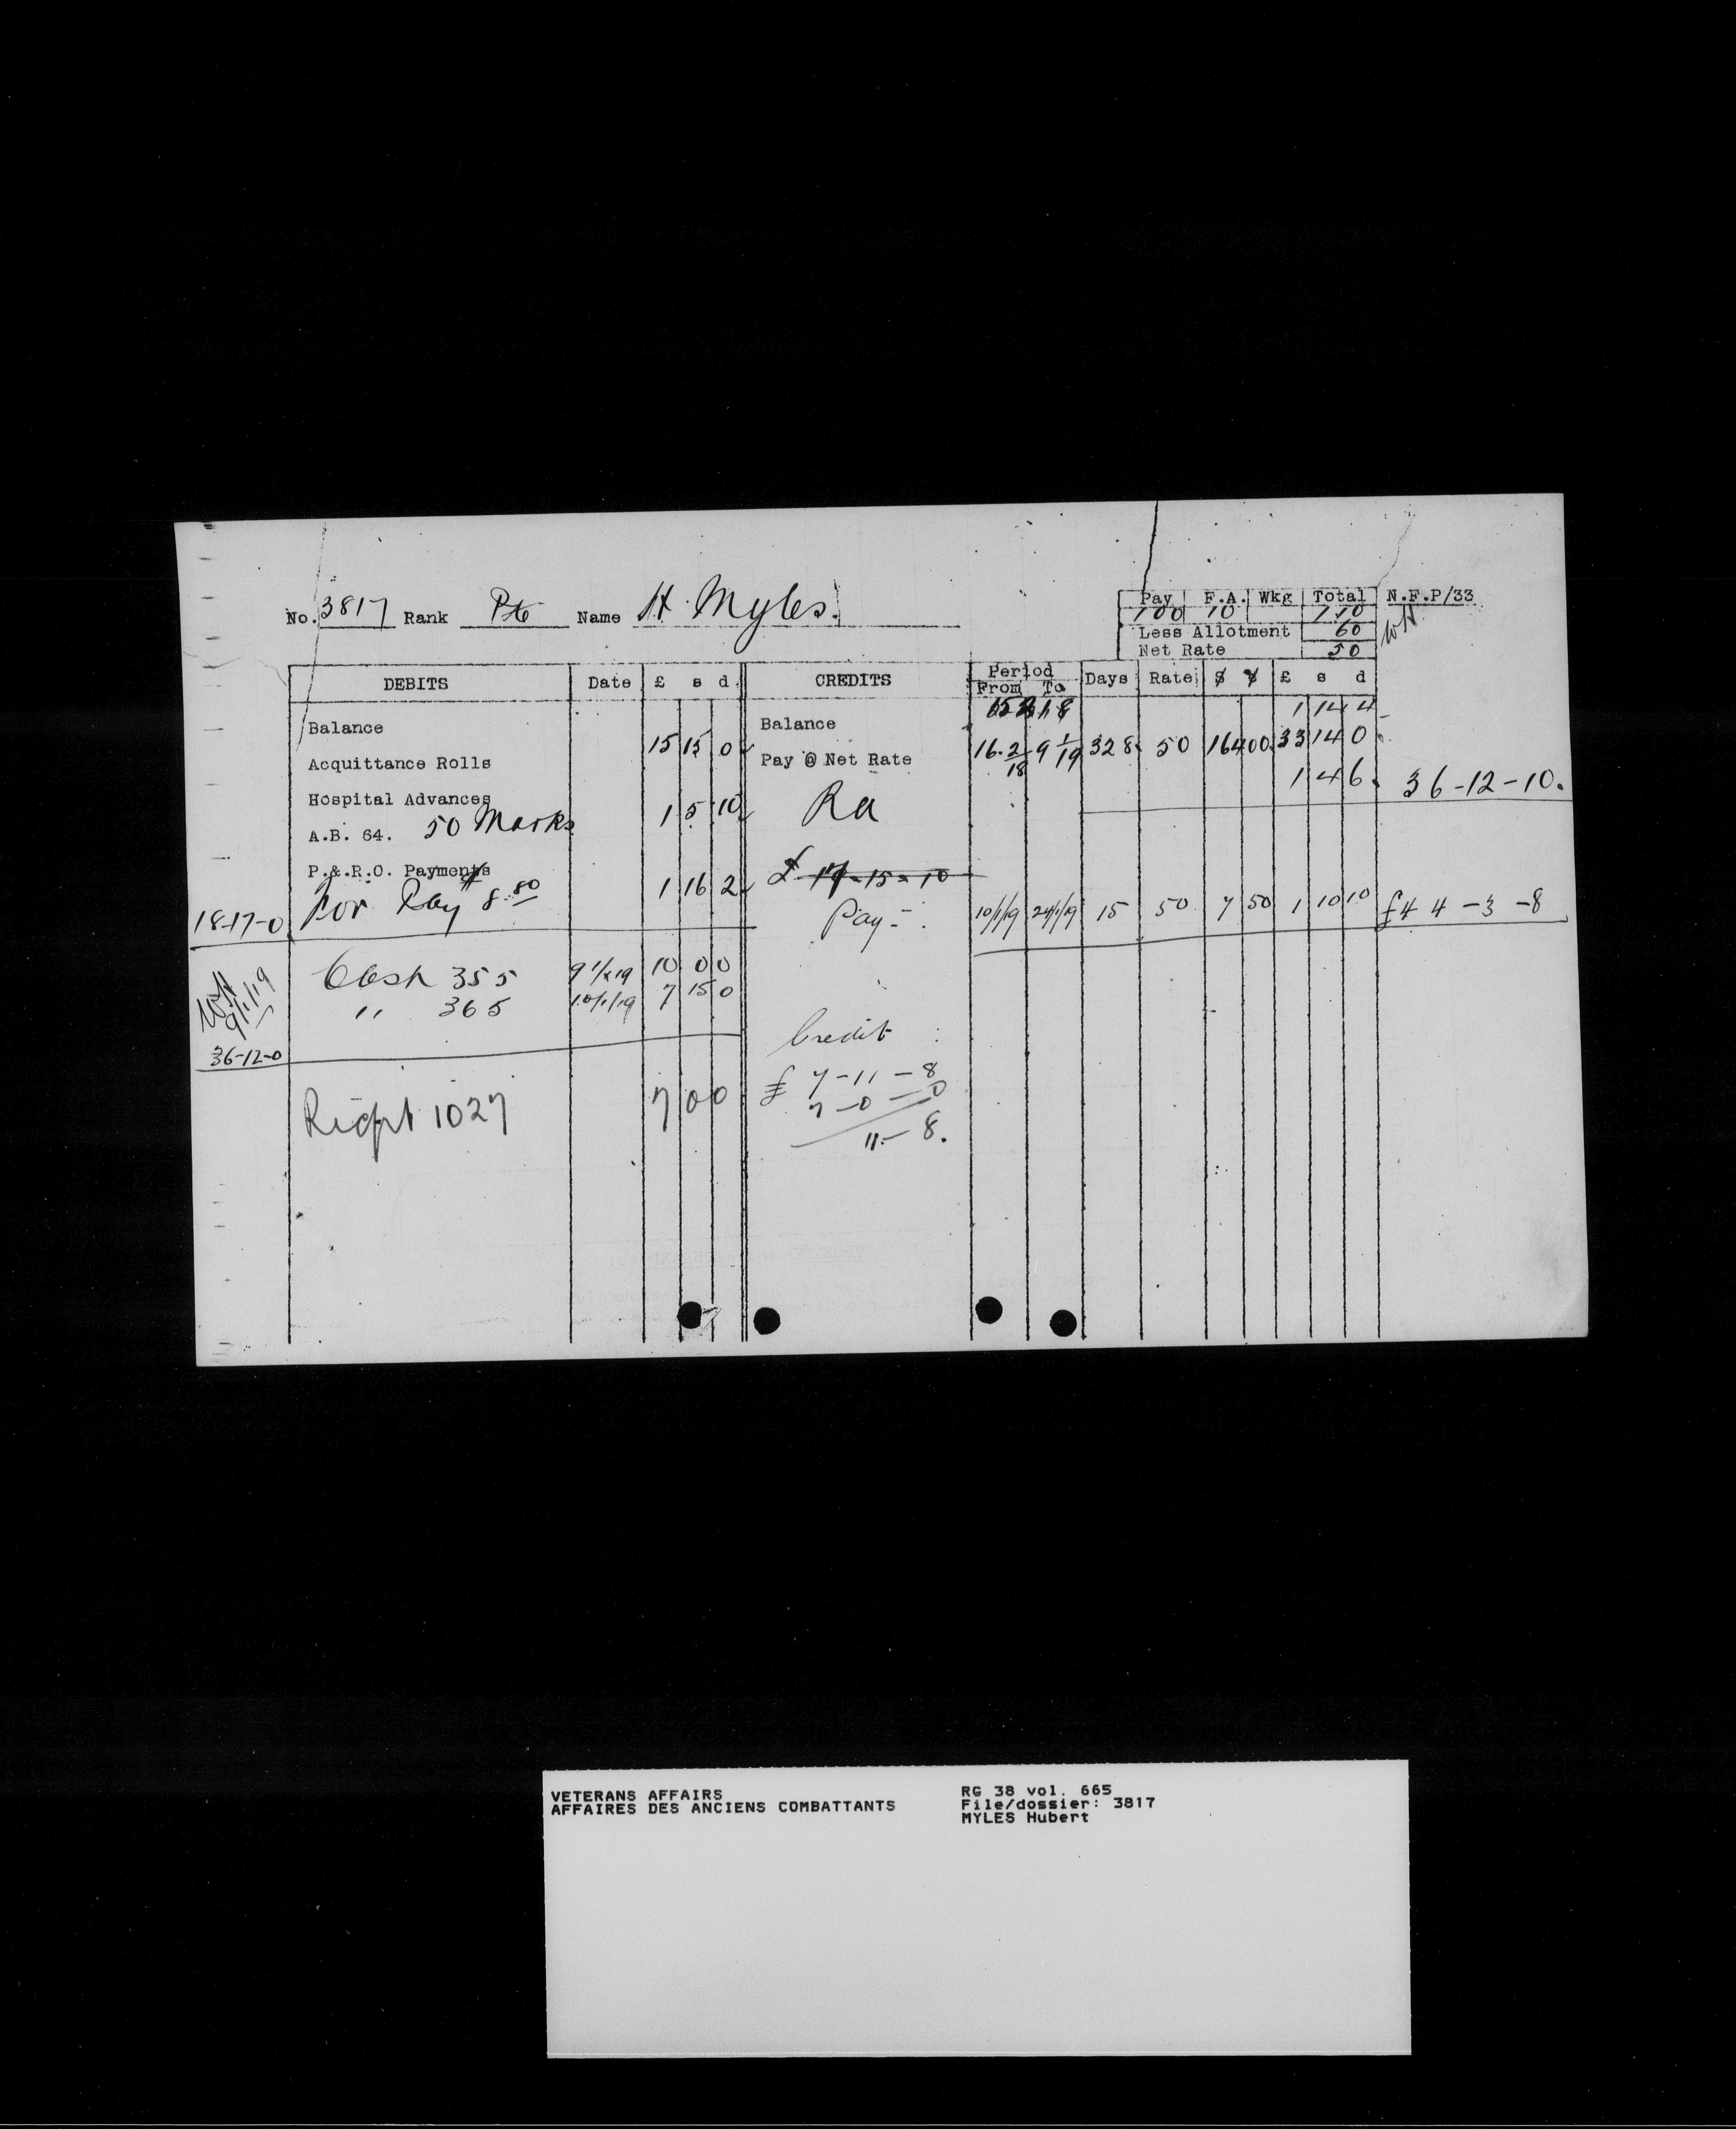 No. 3817 Rank Pte Name H. Myles.
Pay F.A. Wkg Total N.F.P/33
100 10 110
Less Allotment 60
Net Rate 50
WH
DEBITS Date £ s d CREDITS Period From To Days Rate $ ¢ £ s d
Balance Balance 1 14 4
Acquittance Rolls 15 15 0 Pay @ Net Rate 16.2/18 9 1/19 328 50 164 00 33 14 0
Hospital Advances 1 4 6 36-12-10.
A.B. 64. 50 Marks 1 5 10 Ra
P.& R.O. Payments £ 17-15-10
18-17-0 For Pay $8.80 1 16 2 Pay - 10/1/19 24/1/19 15 50 7 50 1 10 10 £44-3-8
Cash 355 9/1/19 10 0 0
" 365 10/1/19 7 15 0
WH 9/1/19
36-12-0
Credit
£ 7-11-8
7-0-0
11-8.
1027 7 0 0
VETERANS AFFAIRS
AFFAIRES DES ANCIENS COMBATTANTS
RG 38 vol. 665
File/dossier: 3817
MYLES Hubert